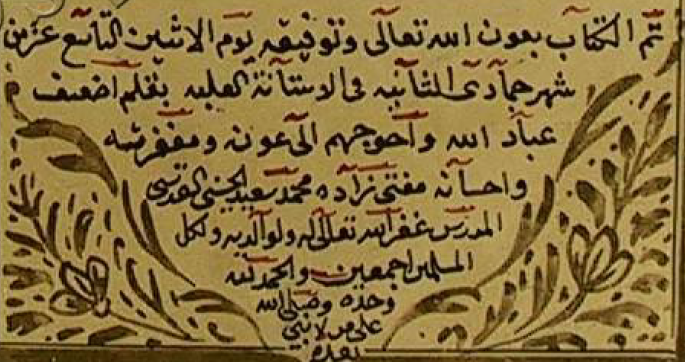 تم الكتاب بعون الله تعالى وتوفيقه يوم الاثنين التاسع عشر من
شهر جمادى الثانيه فى الاستانة العليه بقلم اضعف
عباد الله واحوجهم الى عونه ومغفرته
واحسانه مفتى زاده محمد سعيد الحسينى القدسى
المدرس غفر الله تعالى له ولوالديه ولكل
المسلمين اجمعين والحمد لله
وحده وصلى الله
على من لا نبي
بعده